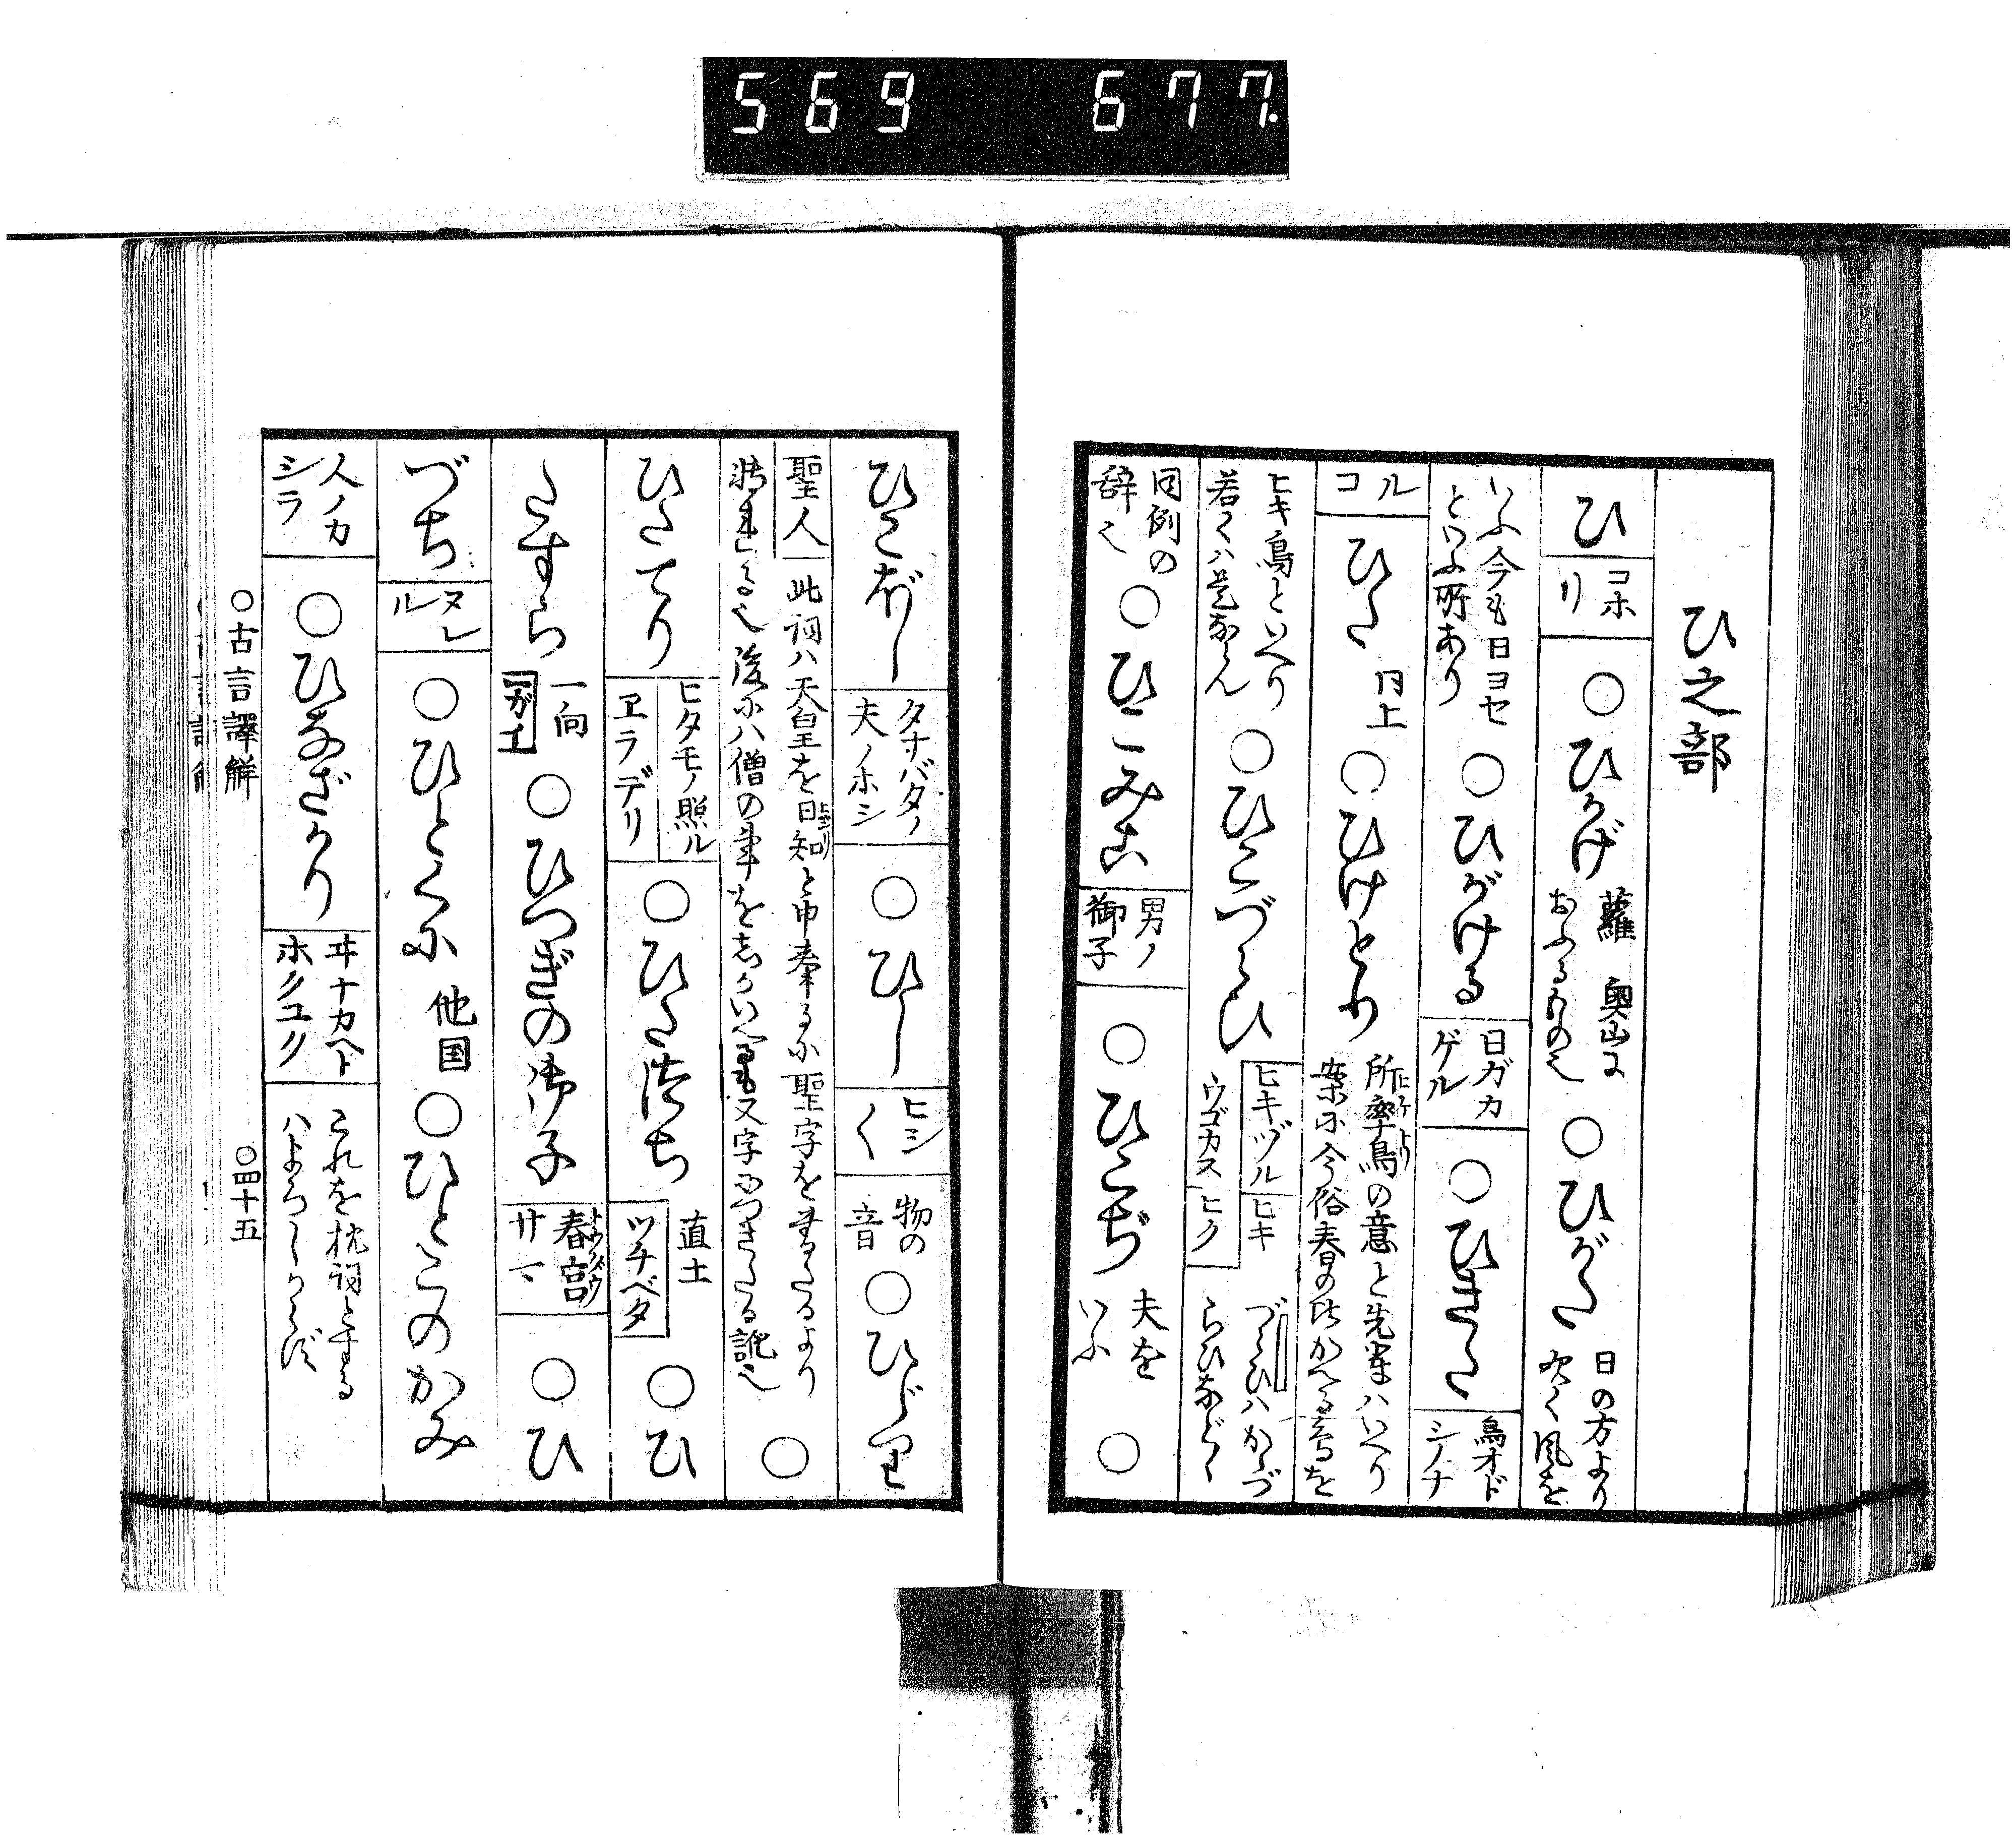 569 677.
ひ之部
ひ コホリ ○ひかげ 蘿 奥山におふるもの也 ○ひがた 日の方より吹く風を
いふ今も日ヨセといふ所あり ○ひがける 日ガカゲル ○ひきた 鳥オドシノナ
ルコ ひた 同上 ○ひけとり 所率鳥の意と先輩ハいへり案に今俗春の比かへる鳥を
ヒキ鳥といへり若くハ是ならん ○ひこづらひ ヒキヅル ヒキウゴカス ヒク づらひハかゝづらひなどゝ
同例の辞也 ○ひこみこ 男ノ御子 ○ひこぢ 夫をいふ ○
ひこぼし タナバタノ夫ノホシ ○ひし ヒシ〱 物の音 ○ひじり
聖人 此詞ハ天皇を日知と申奉るに聖字を書たるより
転れる也後にハ僧の事をしかいへるも又字につきたる訛也 ○
ひたてり ヒタモノ照ル ヱラデリ ○ひたつち 直土 ツチベタ ○ひ
たすら 一向 ○ひつぎの御子 春宮サマ トウグウ ○ひ
づち ヌレル ○ひとくに 他国 ○ひとこのかみ
人ノカシラ ○ひなざかり ヰナカヘトホクユク これを枕詞とするハよろしからず
○古言譯解 ○四十五